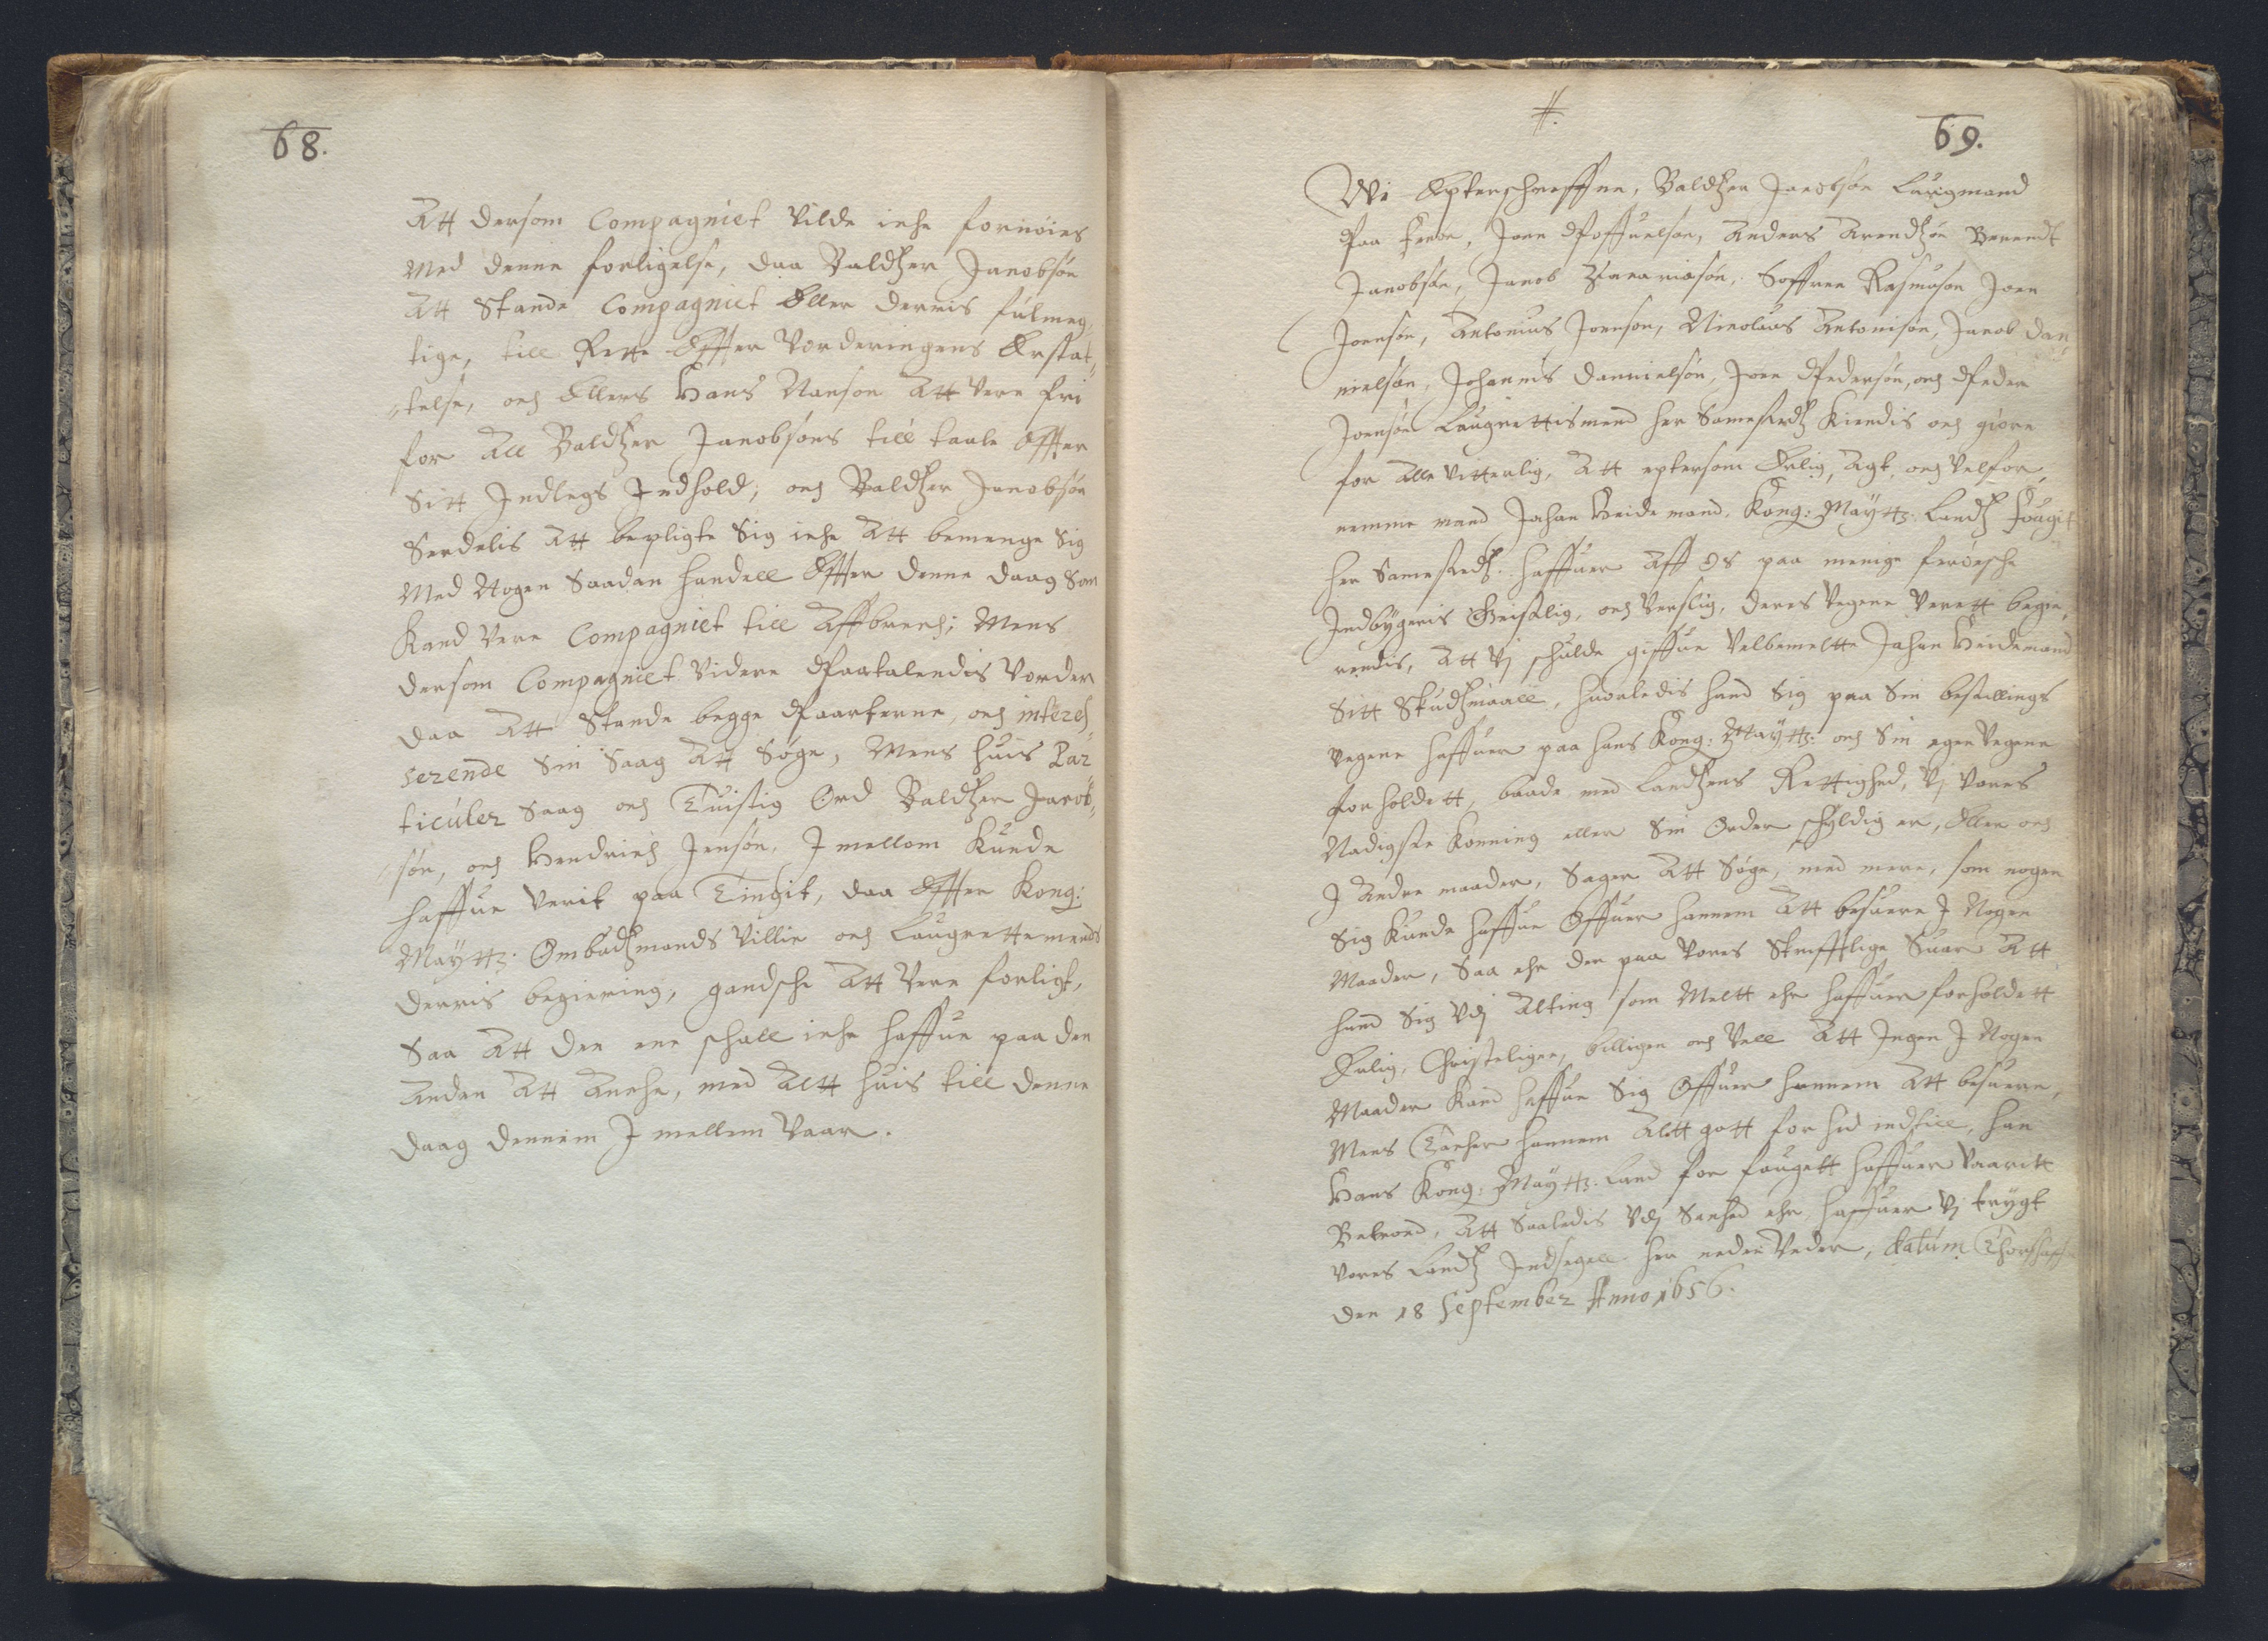 68.
Att dersom Compagniet vilde iche fornøies
Med denne forligelse, daa Baldtzer Jacobsøn
Att Stande Compagniet Eller derris fulmeg,
tige, till Rette Effter Vorderingens Erstat,
telse, och Ellers Hans Nanson Att Vere fri
for All Baldtzer Jacobsøns till taale Effter
Sitt Indlegs Indhold; och Baldtzer Jacobsøn
Serdelis Att bepligte Sig iche Att bemenge Sig
Med Nogen Saadan handell Effter denne daag Som
Kand Vere Compagniet till Affbrech; Mens
dersom Compagniet Videre Paatalendis Vorder
daa Att Stande begge Paarterne, och interes,
serende Sin Saag Att Søge, Mens huis Par
ticuler Saag och Tuistig Ord Baldtzer Jacob,
søn, och Hendrich Jensøn, I mellom Kunde
haffue Verit paa Tingit, daa Effter Kong:
Maytts: Ombudtzmands Villie och Laugrettemends
derris begiering, gandsche Att Vere forligt,
Saa Att den ene schall iche haffue paa den
Anden Att Anche, med Altt huis till denne
daag dennem I mellem Vaar.
#.
69.
Wi Epterschreffne, Baldtzer Jacobsøn Laugmand
Paa Feroe, Joen Poffuelsøn, Anders Arendtzøn Berendt
Jacobsøn, Jacob Zacariasøn, Soffren Rasmuson Joen
Joensøn, Antonius Joensøn, Nicolaus Antonisøn, Jacob Dan,
nielsøn, Johannis Dannielsøn, Joen Pedersøn, och Peder
Joensøn Laugrettismend her Samestedtz Kiendis och giøre
for Alle vitterlig, Att eptersom Erlig, Agt. och Velfor,
nemme mand Johan Heidemand, Kong: Maytts: Landtz Fougit
her Samestedtz. haffuer Aff os paa menige feroesche
Indbygeris Geistlig, och Verslig, deres Vegene Verett begie,
rendis, Att Vj schulde giffue Velbemeltte Johan Heidemand
Sitt Skudtzmaall, huorledis hand Sig paa Sin bestillings
Vegene haffuer paa hans Kong: Maytts: och Sin egen Vegene
forholdett, baade med Landtzens Rettighed, Vj Vores
Nadigste Konning eller Sin Order schyldig er, Eller och
I Andre maader, Sager Att Søge, med mere, som nogen
Sig Kunde haffue Offuer hannem Att besuere I Nogen
Maader, Saa ehr der paa Vores Skrifftlige Suar Att
hand Sig Vdj Alting som Meltt ehr haffuer forholdett
Erlig, Christeligen, billigen och Vell Att Ingen I Nogen
Maader Kand haffue Sig Offuer hannem Att besuere,
Mens Tacher hannem Altt gott for hid indtill, han
Hans Kong: Maytts. Land for fougett haffuer Vaaritt
Betroed, Att Saaledis Vdj Sanhed ehr, haffuer Vj trygt
Vores Landtz Indsegell her neden Veder, datum Thorshaffn
den 18 September Anno 1656.